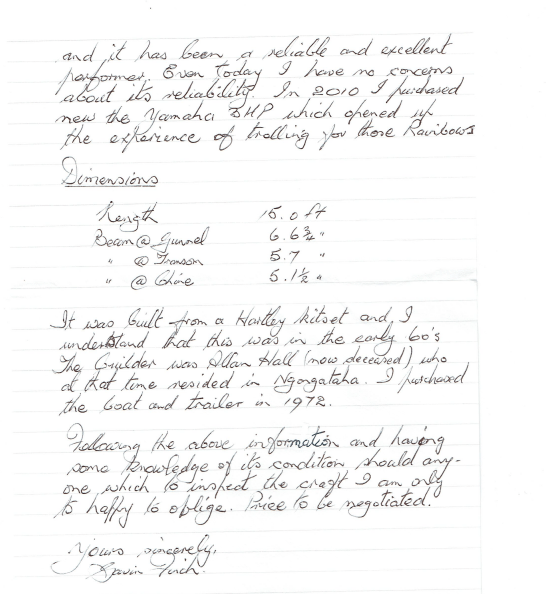 and it has been a reliable and excellent
performer. Even today I have no concerns
about its reliability. In 2010 I purchased
new the Yamaha 8HP which opened up
the experience of trolling for those Rainbows
Dimensions
Length 15.0 ft
Beam @ Gunnel 6.6¾ "
" @ Transom 5.7 "
" @ Chine 5.1½ "
It was built from a Hartley kitset and, I
understand that this was in the early 60's
The Builder was Allan Hall (now deceased) who
at that time resided in Ngongataha. I purchased
the boat and trailer in 1972.
Following the above information and having
some knowledge of its condition should any-
one wish to inspect the craft I am only
to happy to oblige. Price to be negotiated.
Yours sincerely,